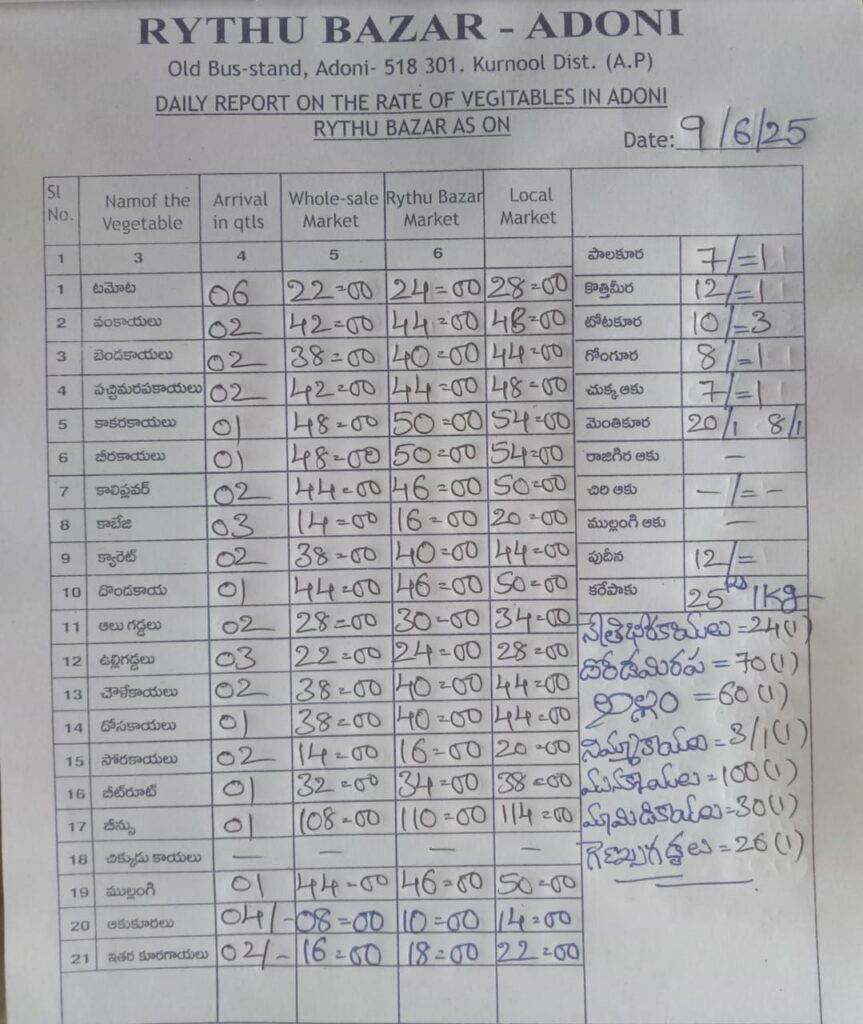 RYTHU BAZAR - ADONI
Old Bus-stand, Adoni- 518 301. Kurnool Dist. (A.P)
DAILY REPORT ON THE RATE OF VEGITABLES IN ADONI
RYTHU BAZAR AS ON
Date: 9/6/25
Sl No. Namof the Vegetable Arrival in qtls Whole-sale Market Rythu Bazar Market Local Market
1 3 4 5 6
1 టమోట 06 22=00 24=00 28=00
2 వంకాయలు 02 42=00 44=00 48=00
3 బెండకాయలు 02 38=00 40=00 44=00
4 పచ్చిమిరపకాయలు 02 42=00 44=00 48=00
5 కాకరకాయలు 01 48=00 50=00 54=00
6 బీరకాయలు 01 48=00 50=00 54=00
7 కాలిఫ్లవర్ 02 44=00 46=00 50=00
8 కాబేజి 03 14=00 16=00 20=00
9 క్యారెట్ 02 38=00 40=00 44=00
10 దొండకాయ 01 44=00 46=00 50=00
11 ఆలు గడ్డలు 02 28=00 30=00 34=00
12 ఉల్లిగడ్డలు 03 22=00 24=00 28=00
13 చౌళేకాయలు 02 38=00 40=00 44=00
14 దోసకాయలు 01 38=00 40=00 44=00
15 సోరకాయలు 02 14=00 16=00 20=00
16 బీట్‌రూట్ 01 32=00 34=00 38=00
17 బీన్సు 01 108=00 110=00 114=00
18 చిక్కుడు కాయలు — — — —
19 ముల్లంగి 01 44=00 46=00 50=00
20 ఆకుకూరలు 04/- 08=00 10=00 14=00
21 ఇతర కూరగాయలు 02/- 16=00 18=00 22=00
పాలకూర 7/=1
కొత్తిమీర 12/=1
టోటకూర 10/=3
గోంగూర 8/=1
చుక్క ఆకు 7/=1
మెంతికూర 20/1 8/1
రాజగిర ఆకు —
చిరి ఆకు —/=-
ముల్లంగి ఆకు —
పుదీన 12/=
కరేపాకు 25 Rs 1Kg
=24(1)
=70(1)
అల్లం =60(1)
నిమ్మకాయలు =3/1(1)
మునక్కాయలు =100(1)
మామిడికాయలు=30(1)
గెణుసుగడ్డలు =26(1)